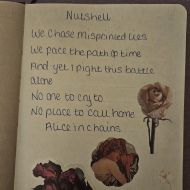 Nutshell
We Chase Misprinted Lies
We pace the path of time
And yet I fight this battle
alone
No one to cry to
No place to call home
Alice in chains